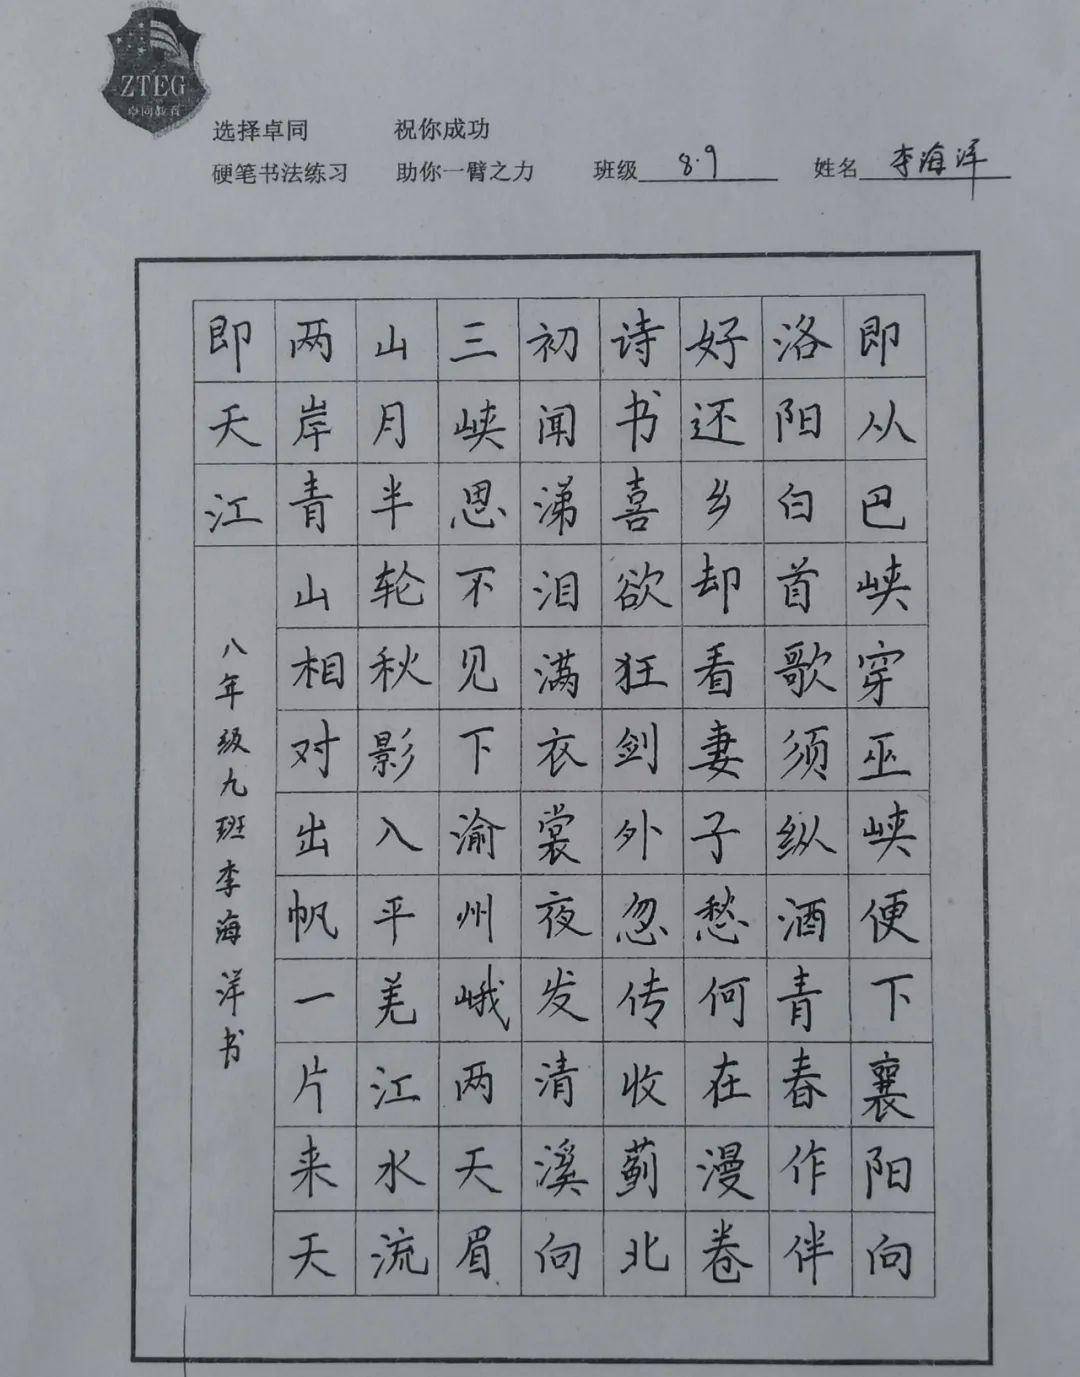 ZTEG
卓同教育
选择卓同 祝你成功
硬笔书法练习 助你一臂之力 班级 8.9 姓名 李海洋
即从巴峡穿巫峡便下襄阳向
洛阳白首歌须纵酒青春作伴
好还乡却看妻子愁何在漫卷
诗书喜欲狂剑外忽传收蓟北
初闻涕泪满衣裳夜发清溪向
三峡思不见下渝州峨两天眉
山月半轮秋影入平羌江水流
两岸青山相对出帆一片来天
即天江
八年级九班李海洋书